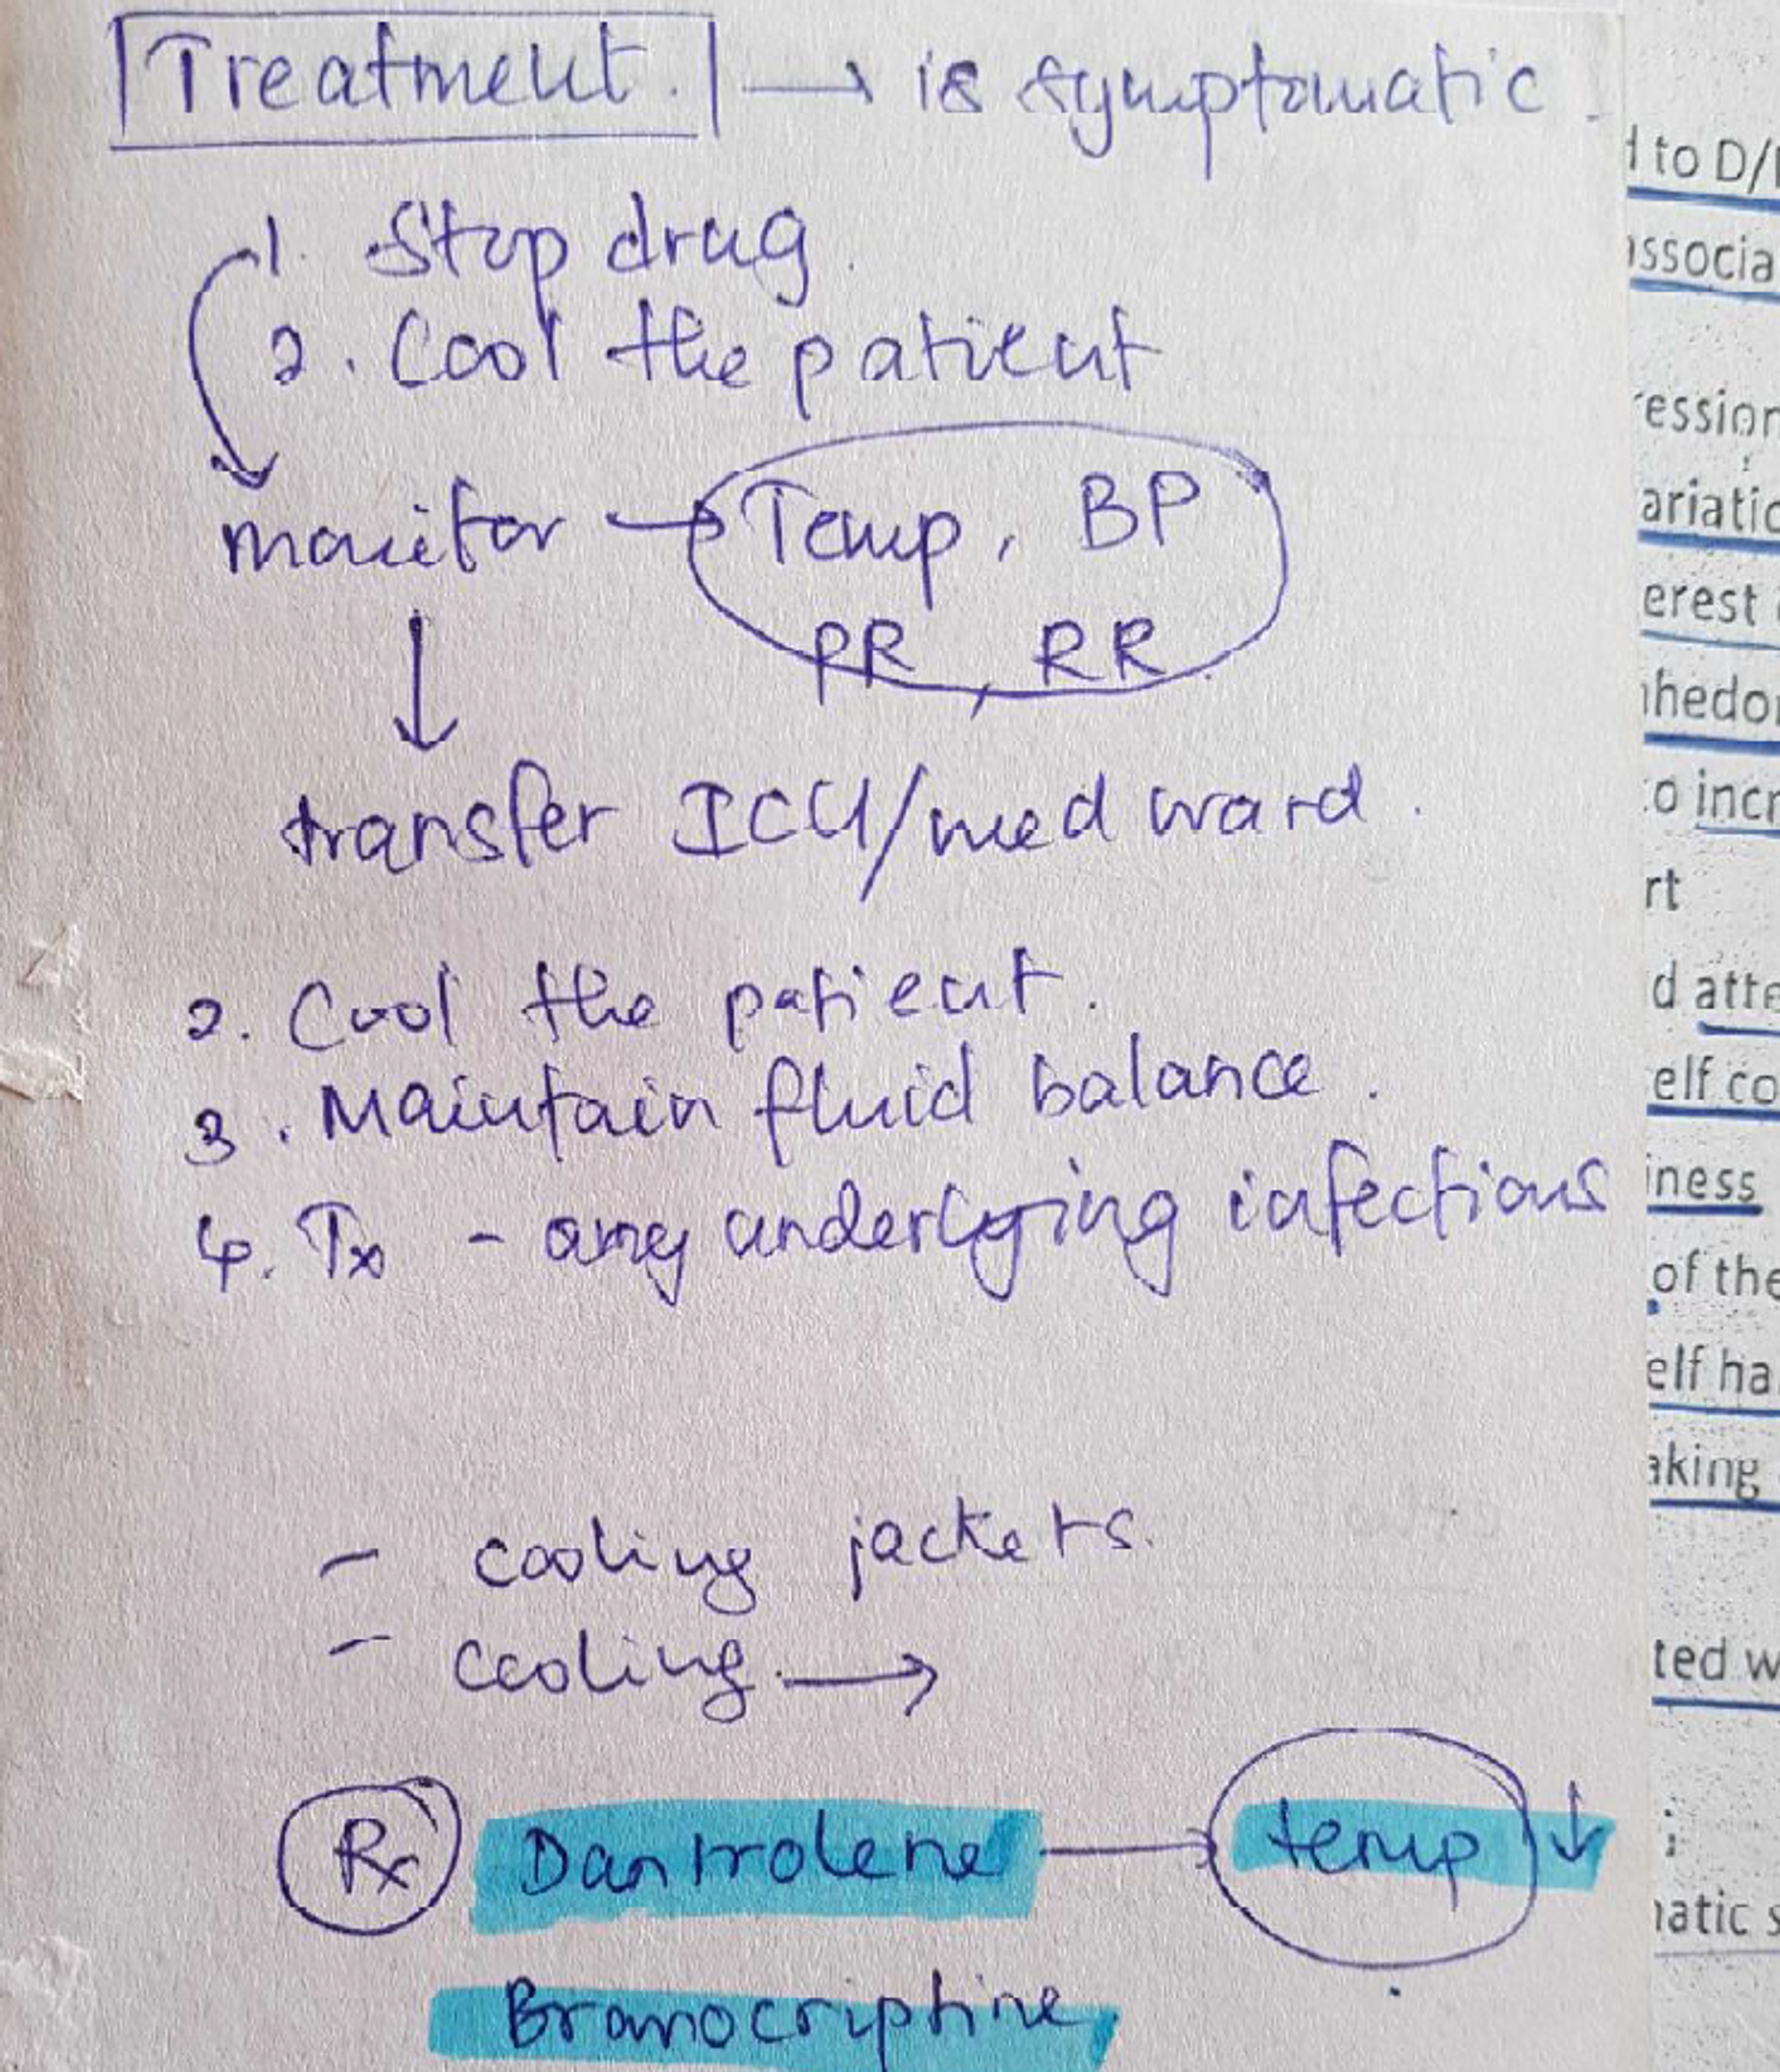 Treatment. → is symptomatic.
1. Stop drug.
2. Cool the patient
monitor → Temp, BP
PR, RR
transfer ICU/med ward.
2. Cool the patient.
3. Maintain fluid balance.
4. Tx - any underlying infections
- cooling jackets.
- cooling →
Rx Dantrolene → temp ↓
Bromocriptine
d to D/
associa
ression
ariatio
erest
nhedon
to incr
rt
d atte
elf co
iness
of the
elf ha
aking
ted w
;
matic s